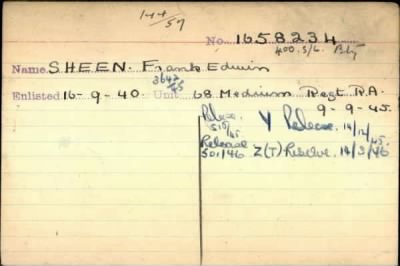 144/57
No. 1658234
400. S/L. Bty
Name SHEEN. Frank Edwin
3642/45
Enlisted 16-9-40. Unit 68 Medium Regt R.A.
9-9-45.
Release 515/45 Y Release. 14/12/45.
Release 501/46 Z(T) Reserve. 14/3/46